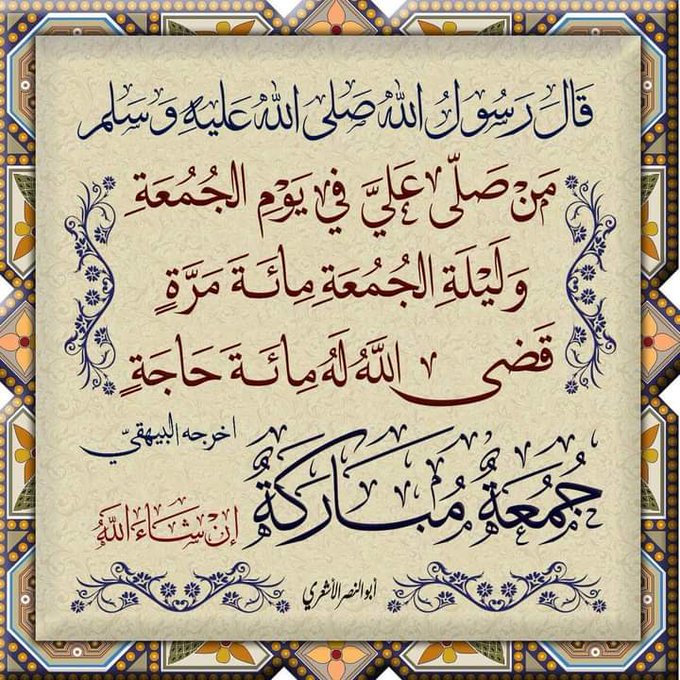 قَالَ رَسُولُ اللهِ صَلَى اللهُ عَلَيْهِ وَسَلم
مَنْ صَلَّى عَلَيَّ فِي يَوْمِ الجُمُعَةِ
وَلَيْلَةِ الجُمُعَةِ مِائَةَ مَرَّةٍ
قَضَى اللَّهُ لَهُ مِائَةَ حَاجَةٍ
اخرجه البيهقيّ
جُمُعَةٌ مُبَارَكَةٌ
إِنْ شَاءَ اللَّهُ
أبوالنصر الأشعري